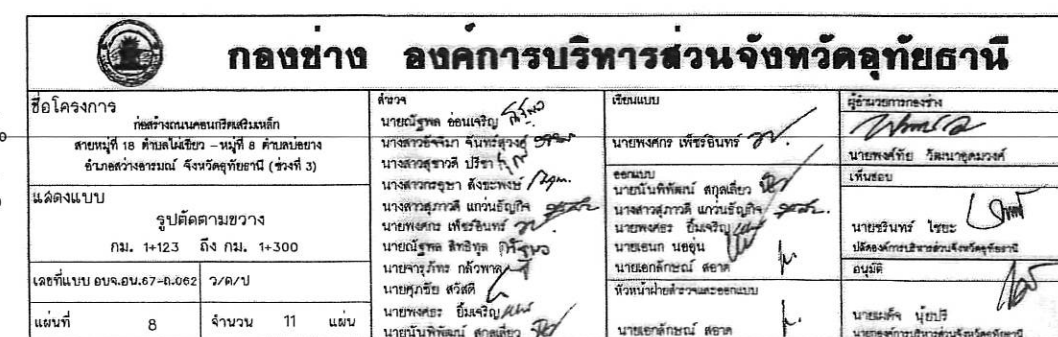 กองช่าง องค์การบริหารส่วนจังหวัดอุทัยธานี
ชื่อโครงการ
ก่อสร้างถนนคอนกรีตเสริมเหล็ก
สายหมู่ที่ 18 ตำบลไผ่เขียว - หมู่ที่ 8 ตำบลบ่อยาง
อำเภอสว่างอารมณ์ จังหวัดอุทัยธานี (ช่วงที่ 3)
แสดงแบบ
รูปตัดตามขวาง
กม. 1+123 ถึง กม. 1+300
เลขที่แบบ อบจ.อน.67-ถ.062 ว/ด/ป
แผ่นที่ 8 จำนวน 11 แผ่น
สำรวจ
นายณัฐพล อ่อนเจริญ
นางสาวอัจจิมา จันทร์สุวงศ์
นางสาวสุชาวดี ปรีชา
นางสาวกรอุษา สังขะพงษ์
นางสาวสุภาวดี แกว่นธัญกิจ
นายพงศกร เพ็ชรอินทร์
นายณัฐพล สิทธิทูล
นายจารุภัทร กลัวพาล
นายศุภชัย สวัสดี
นายพงศธร ยิ้มเจริญ
นายนันพิพัฒน์ สกุลเลี่ยว
เขียนแบบ
นายพงศกร เพ็ชรอินทร์
ออกแบบ
นายนันพิพัฒน์ สกุลเลี่ยว
นางสาวสุภาวดี แกว่นธัญกิจ
นายพงศธร ยิ้มเจริญ
นายเอนก นออุ่น
นายเอกลักษณ์ สอาด
หัวหน้าฝ่ายสำรวจและออกแบบ
นายเอกลักษณ์ สอาด
ผู้อำนวยการกองช่าง
นายพงศ์ทัย วัฒนาอุดมวงศ์
เห็นชอบ
นายชรินทร์ ไชยะ
ปลัดองค์การบริหารส่วนจังหวัดอุทัยธานี
อนุมัติ
นายเผด็จ นุ้ยปรี
นายกองค์การบริหารส่วนจังหวัดอุทัยธานี